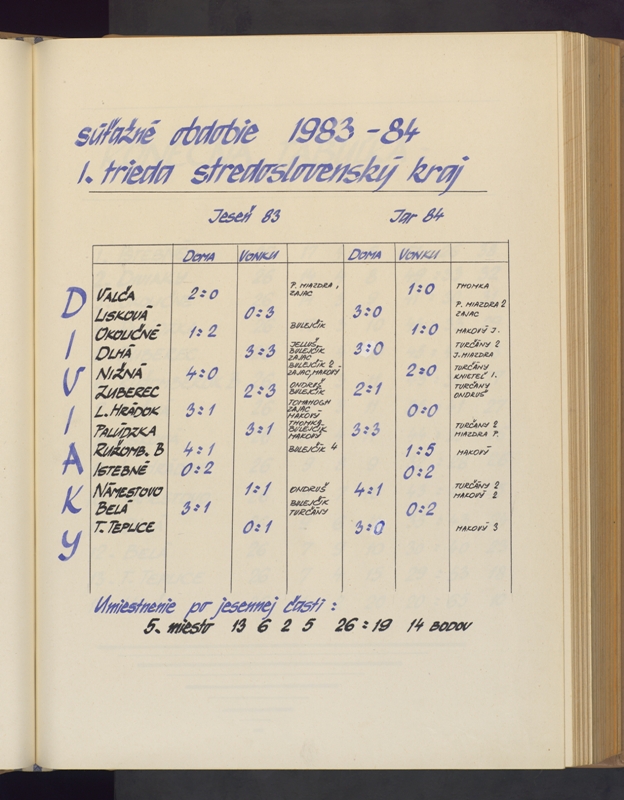 súťažné obdobie 1983-84
I. trieda stredoslovenský kraj
Jeseň 83 Jar 84
DOMA VONKU DOMA VONKU
DIVIAKY
VALČA 2:0 P. MIAZDRA, ZAJAC 1:0 THOMKA
LISKOVÁ 0:3 3:0 P. MIAZDRA 2 ZAJAC
OKOLIČNÉ 1:2 BULEJČÍK 1:0 MAKOVÝ J.
DLHÁ 3:3 JELLUŠ BULEJČÍK ZAJAC 3:0 TURČÁNY 2 J. MIAZDRA
NIŽNÁ 4:0 BULEJČÍK 2 ZAJAC, MAKOVÝ 2:0 TURČÁNY KNIETEL I.
ZUBEREC 2:3 ONDRUŠ BULEJČÍK 2:1 TURČÁNY ONDRUŠ
L. HRÁDOK 3:1 ZAJAC MAKOVÝ 0:0
PALÚDZKA 3:1 THOMKA BULEJČÍK MAKOVÝ 3:3 TURČÁNY 2 MIAZDRA P.
RUŽOMB. B 4:1 BULEJČÍK 4 1:5 MAKOVÝ
ISTEBNÉ 0:2 0:2
NÁMESTOVO 1:1 ONDRUŠ 4:1 TURČÁNY 2 MAKOVÝ 2
BELÁ 3:1 BULEJČÍK TURČÁNY 0:2
T. TEPLICE 0:1 3:0 MAKOVÝ 3
Umiestnenie po jesennej časti:
5. miesto 13 6 2 5 26:19 14 BODOV